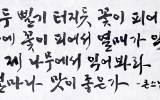 두 빨기 터지듯 꽃이 피어
에 꽃이 피어서 열매가 익
제 나무에서 익어봐라
얼마나 맛이 좋은가